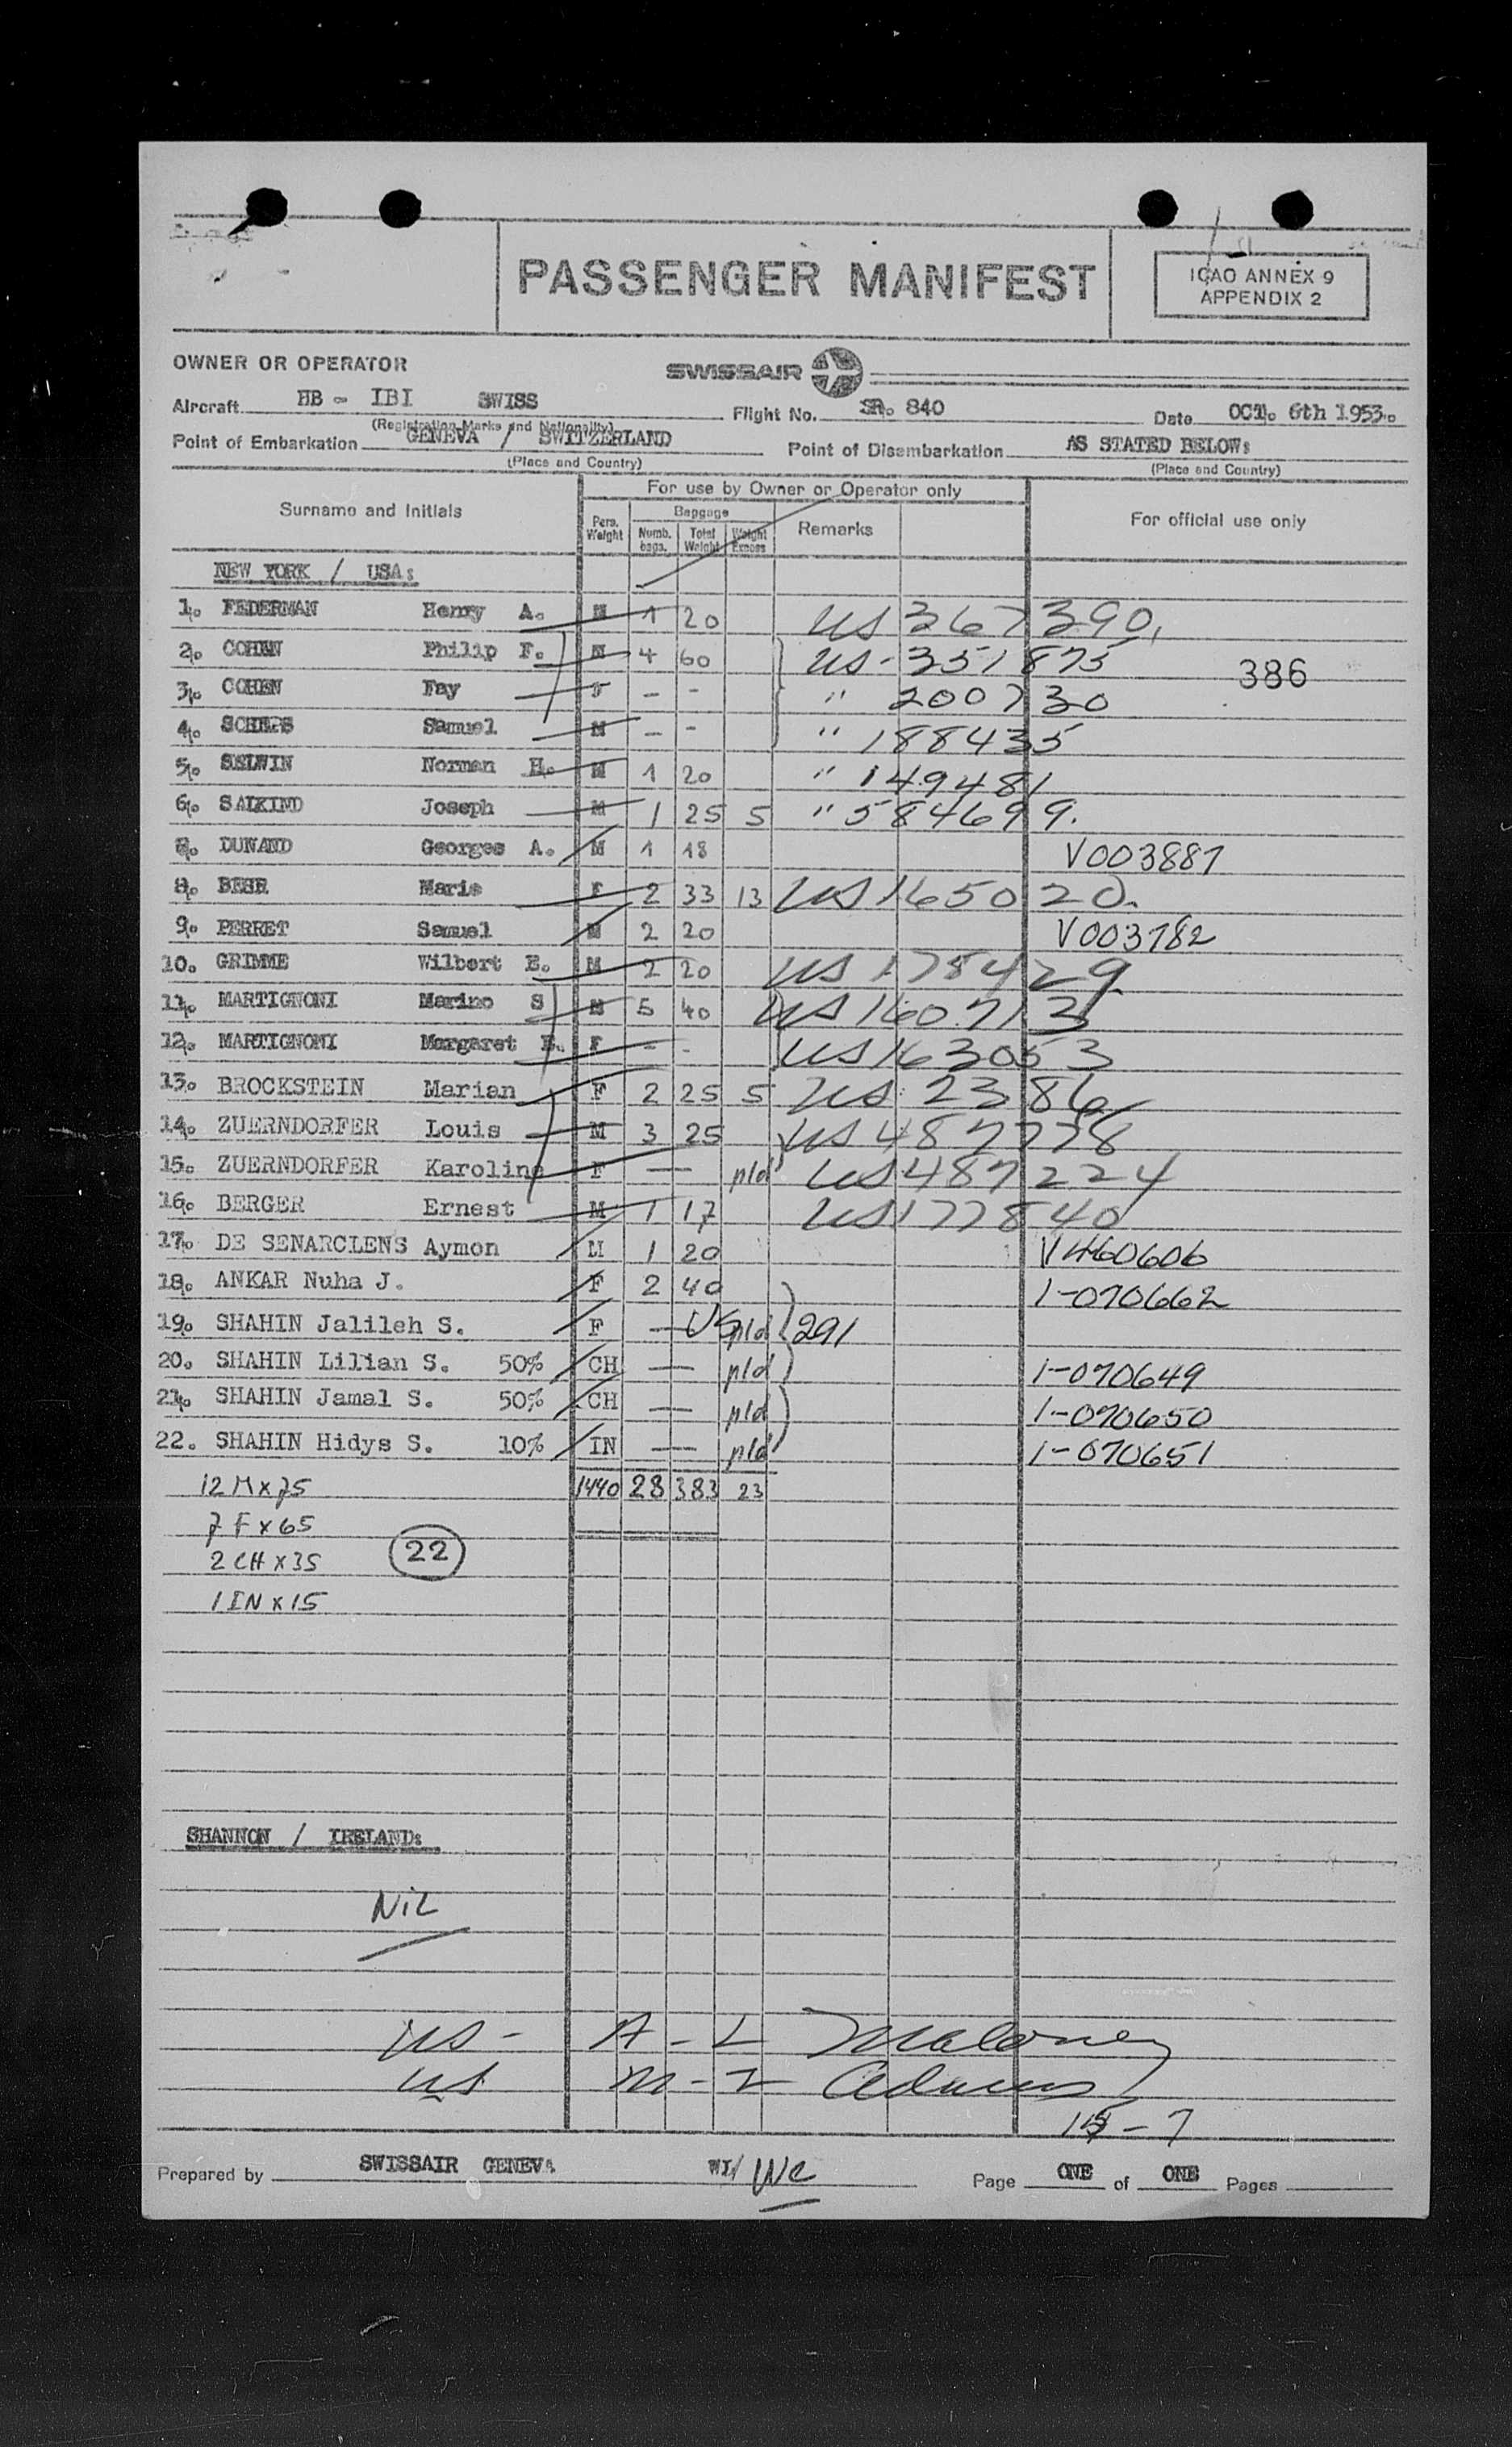 PASSENGER MANIFEST
ICAO ANNEX 9
APPENDIX 2
OWNER OR OPERATOR
SWISSAIR
Aircraft HB - IBI SWISS Flight No. SR. 840 Date OCT. 6th 1953.
(Registration Marks and Nationality)
Point of Embarkation GENEVA / SWITZERLAND Point of Disembarkation AS STATED BELOW:
(Place and Country) (Place and Country)
For use by Owner or Operator only
Surname and Initials Pers. Weight Baggage Numb. bags. Total Weight Weight Excess Remarks For official use only
NEW YORK / USA:
1. FEDERMAN Henry A. M 1 20 US 367390.
2. COHEN Philip F. M 4 60 US-351875
386
3. COHEN Fay F - - " 200730
4. SCHEPS Samuel M - - " 188435
5. SELWIN Norman H. M 1 20 " 149481
6. SALKIND Joseph M 1 25 5 " 584699.
8. DUNAND Georges A. M 1 18 V003887
8. BESR Marie F 2 33 13 US 165020.
9. PERRET Samuel M 2 20 V003782
10. GRIMME Wilbert E. M 2 20 US 178429
11. MARTIGNONI Marino S M 5 40 US 160713
12. MARTIGNONI Margaret E. F - - US 163053
13. BROCKSTEIN Marian F 2 25 5 US 2386
14. ZUERNDORFER Louis M 3 25 US 487778
15. ZUERNDORFER Karoline F — pld US 487224
16. BERGER Ernest M 1 17 US 177840
17. DE SENARCLENS Aymon M 1 20 V460606
18. ANKAR Nuha J. F 2 40 1-070662
19. SHAHIN Jalileh S. F — US pld 291
20. SHAHIN Lilian S. 50% CH — pld 1-070649
21. SHAHIN Jamal S. 50% CH — pld 1-070650
22. SHAHIN Hidys S. 10% IN — pld 1-070651
12 M x 75 1440 28 383 23
7 F x 65
2 CH x 35 22
1 IN x 15
SHANNON / IRELAND:
NiL
US - A - L Maloney
US M - I Adams
15 - 7
Prepared by SWISSAIR GENEVA WI/ We Page ONE of ONE Pages